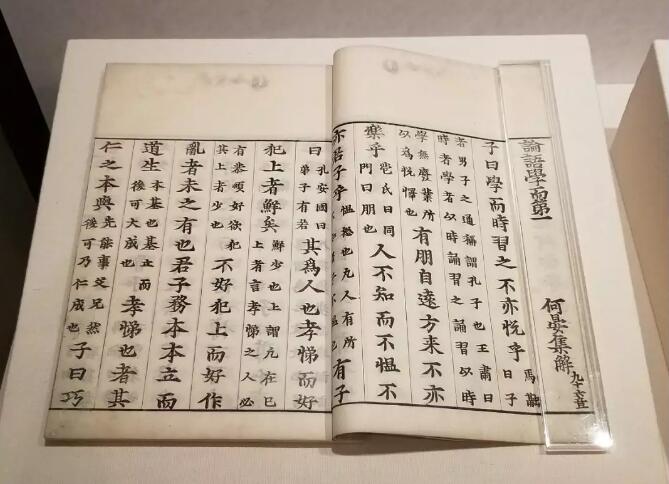 論語學而第一 何晏集解 凡十六章
子曰學而時習之不亦悅乎 馬融曰子
者男子之通稱謂孔子也王肅曰
時者學者以時誦習之誦習以時
學無廢業所以為悅懌也 有朋自遠方來不亦
樂乎 苞氏曰同門曰朋也 人不知而不慍不
亦君子乎 慍怒也凡人有所 有子
曰 孔安國曰弟子有若 其為人也孝悌而好
犯上者鮮矣 鮮少也上謂凡在己上者言孝悌之人必
有恭順好欲犯其上者少也 不好犯上而好作
亂者未之有也君子務本本立而
道生 本基也基立而後可大成也 孝悌也者其
仁之本與 先能事父兄然後可乃仁成也 子曰巧